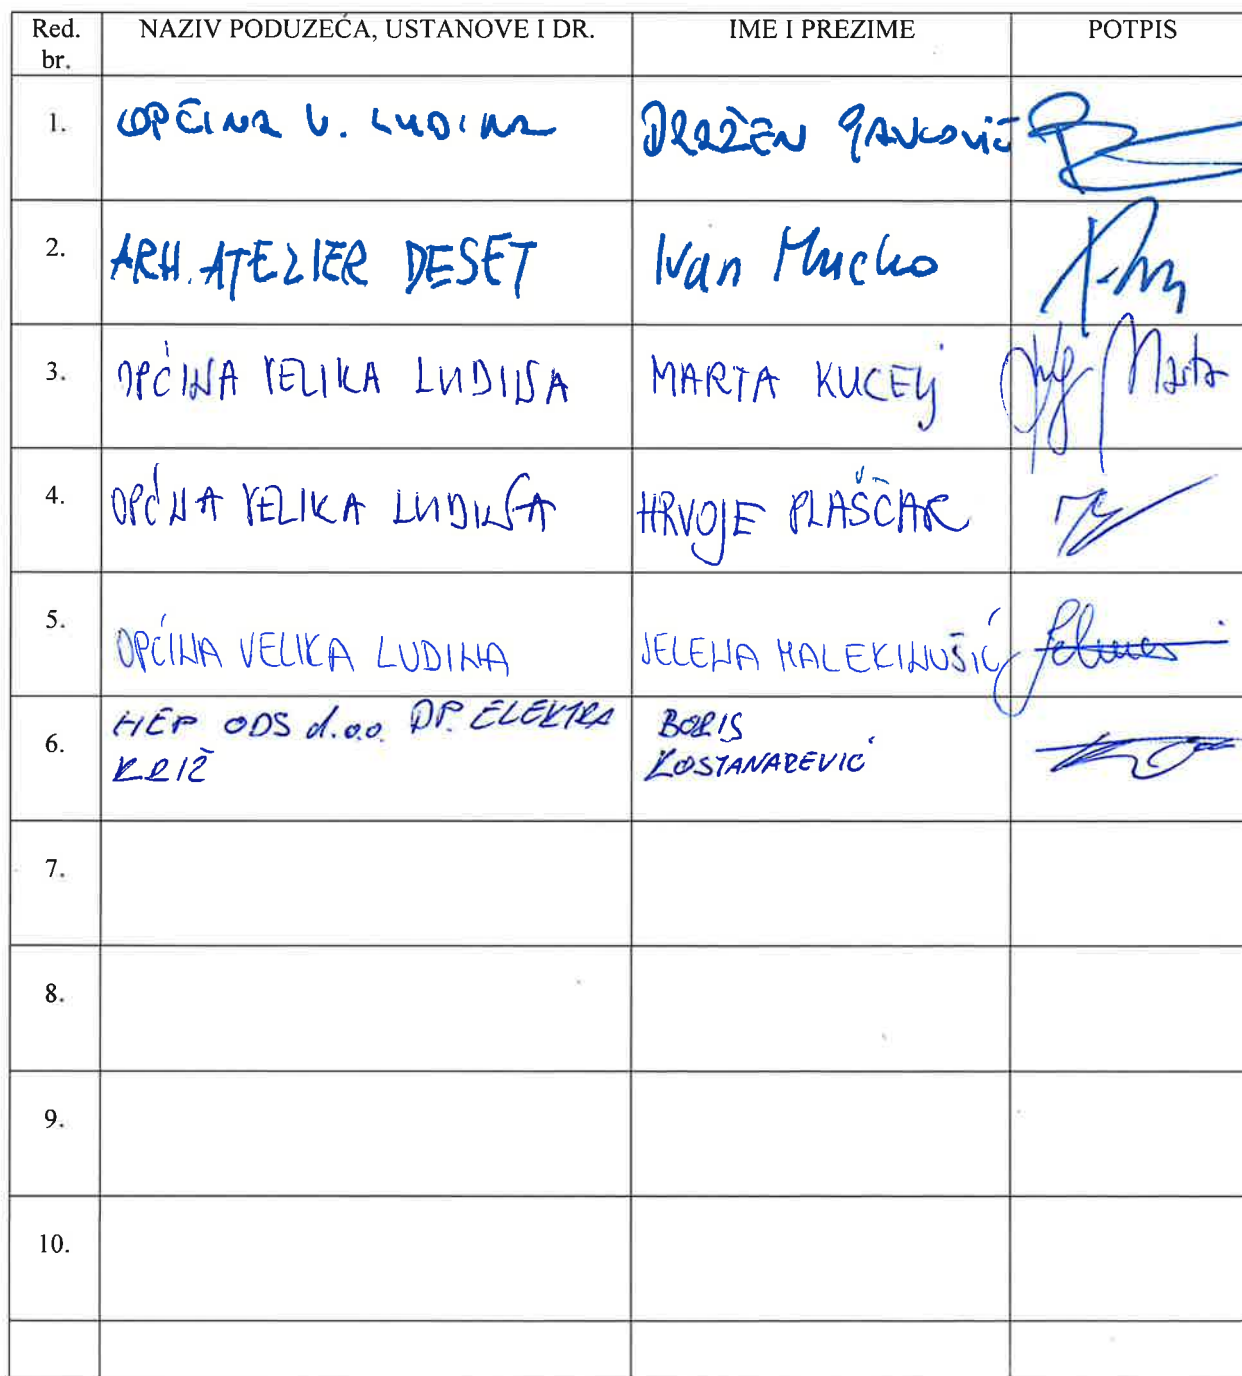 Red. br. NAZIV PODUZEĆA, USTANOVE I DR. IME I PREZIME POTPIS
1. OPĆINA V. LUDINA DRAŽEN JANKOVIĆ
2. ARH. ATELIER DESET Ivan Mucko
3. OPĆINA VELIKA LUDINA MARTA KUCELJ Marta
4. OPĆINA VELIKA LUDINA HRVOJE PLAŠČAR
5. OPĆINA VELIKA LUDINA JELENA MALEKINUŠIĆ
6. HEP ODS d.o.o. DP. ELEKTRA KRIŽ BORIS KOSTANAREVIĆ
7.
8.
9.
10.